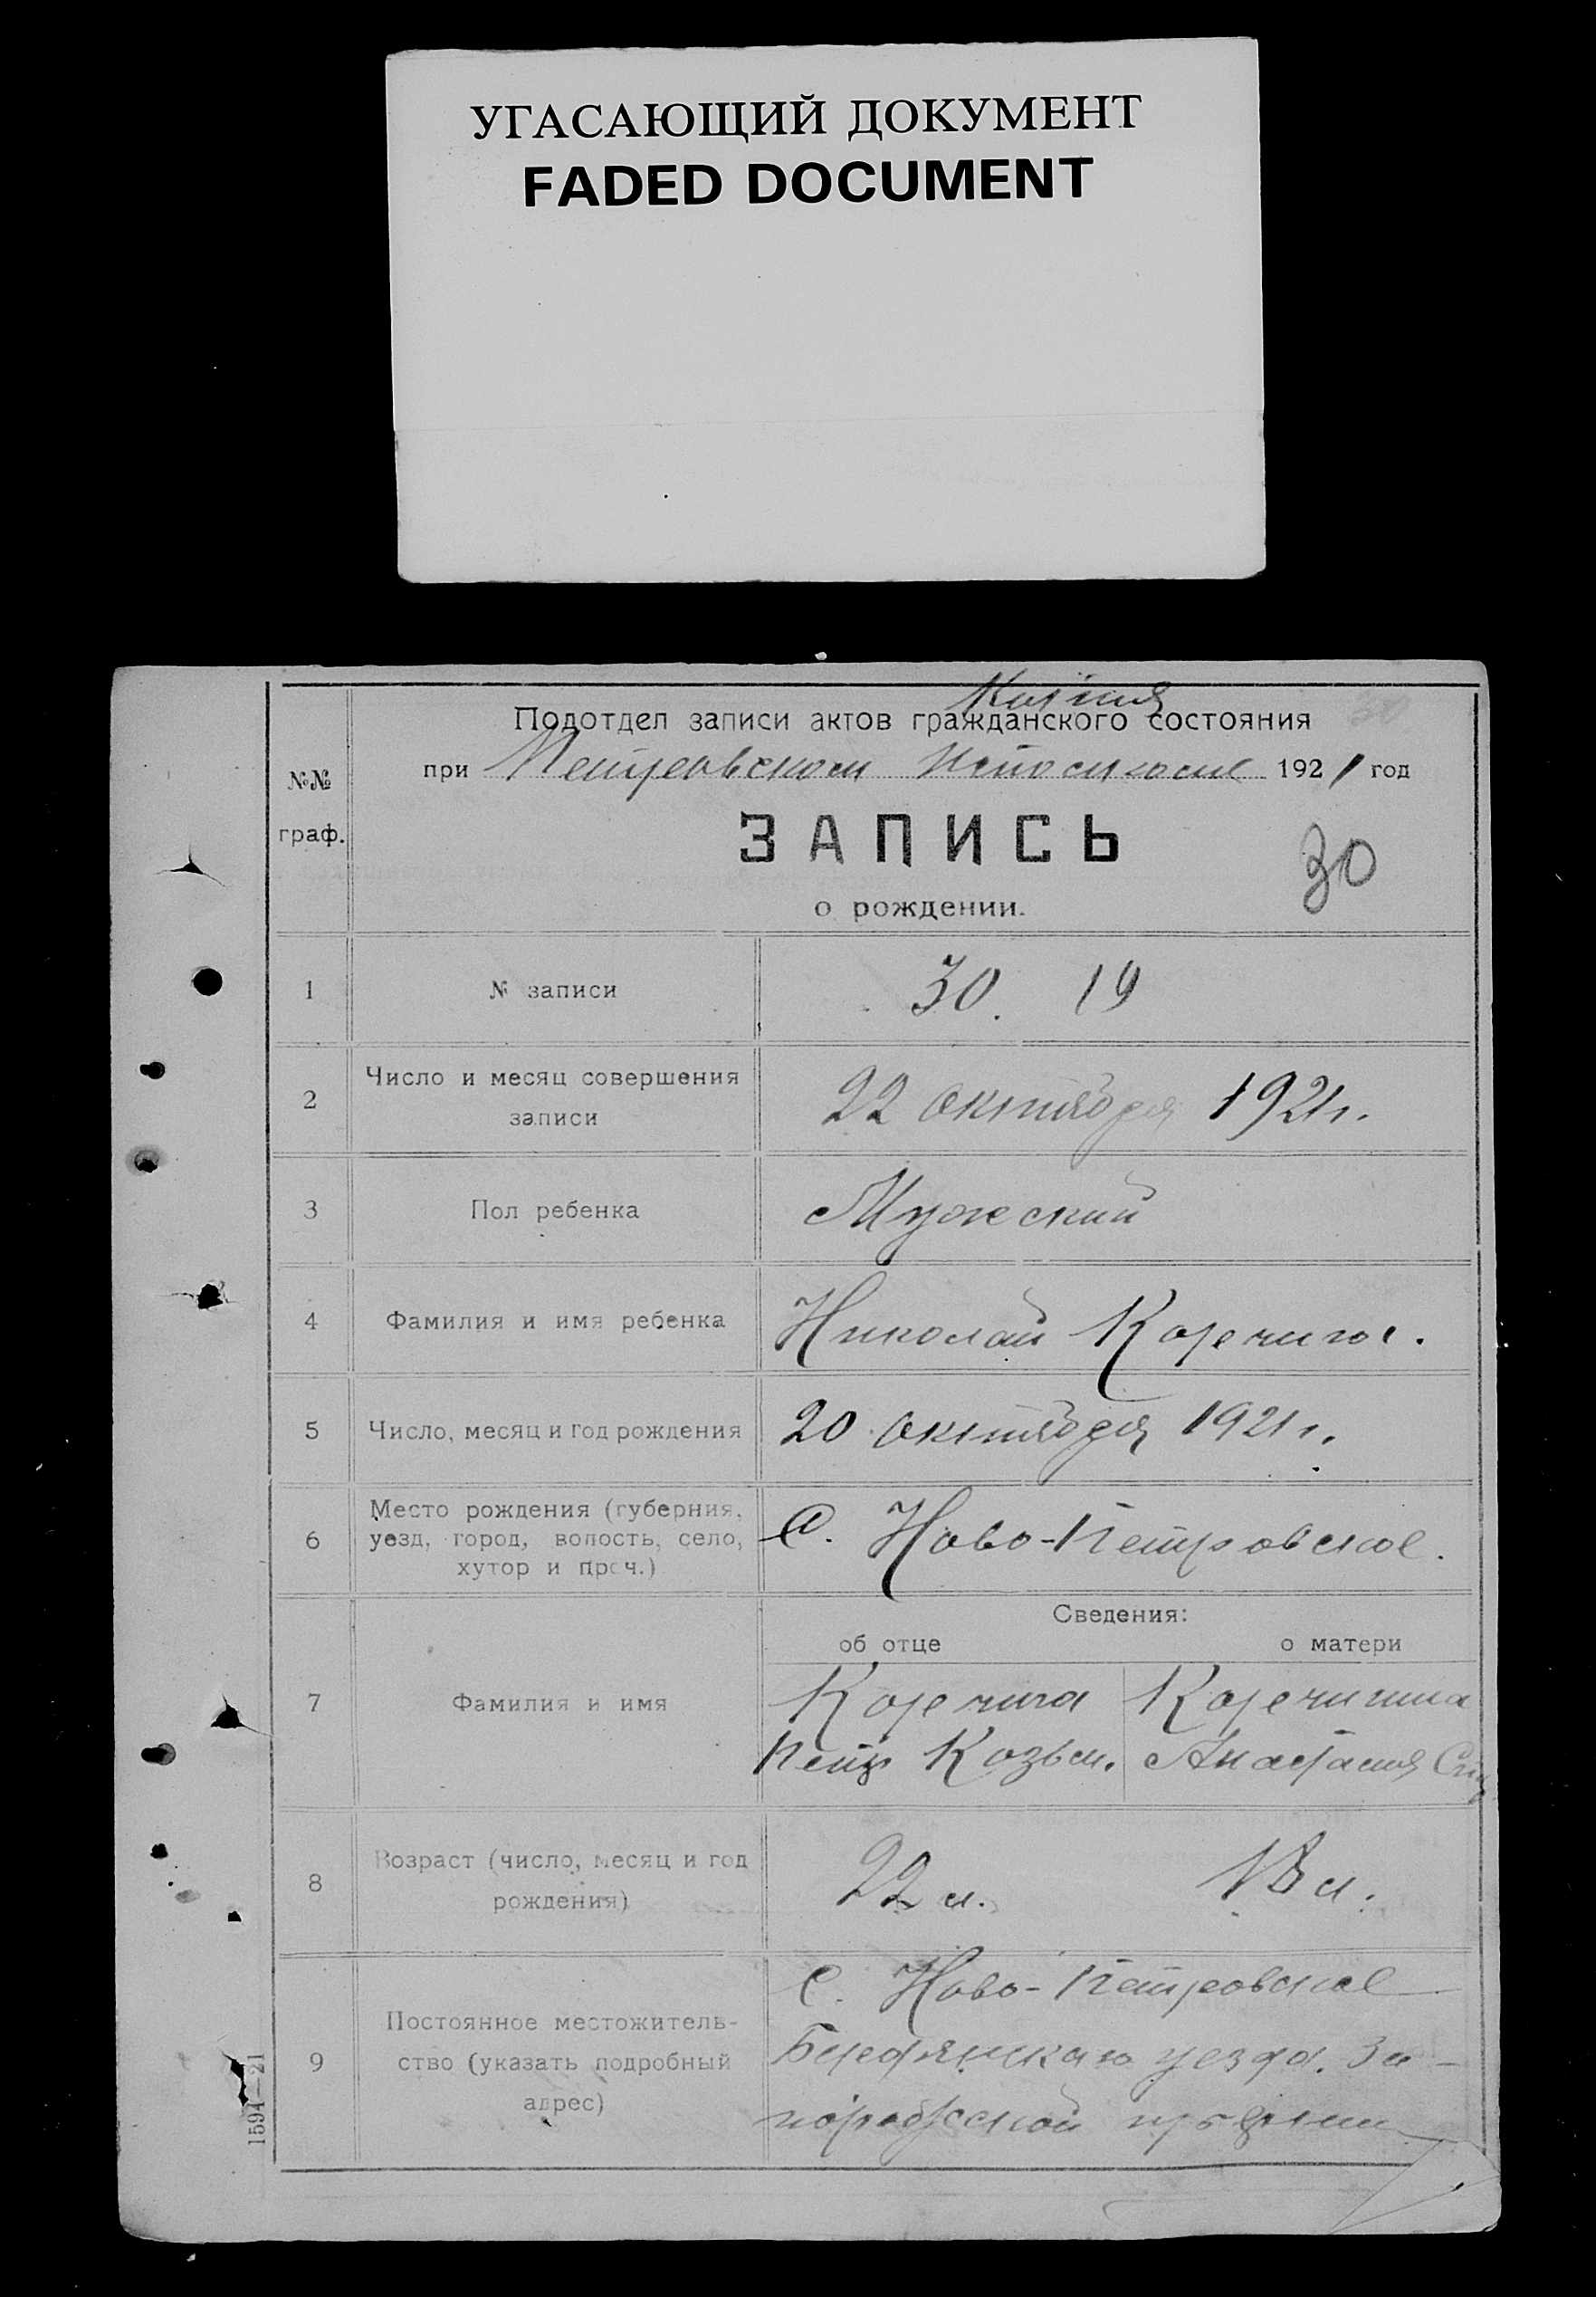 УГАСАЮЩИЙ ДОКУМЕНТ
FADED DOCUMENT
Копия
Подотдел записи актов гражданского состояния
при Петровском 1921 год
№№
граф.
ЗАПИСЬ
30
о рождении.
1 № записи 30. 19
2 Число и месяц совершения
записи
22 октября 1921 г.
3 Пол ребенка Мужеский
4 Фамилия и имя ребенка Николай
5 Число, месяц и год рождения 20 октября 1921 г.
6 Место рождения (губерния,
уезд, город, волость, село,
хутор и проч.)
С. Ново-Петровское.
Сведения:
об отце о матери
7 Фамилия и имя
Петр Козьм. Анастасия
8 Возраст (число, месяц и год
рождения)
22 л. 18 л.
9 Постоянное местожитель-
ство (указать подробный
адрес)
С. Ново-Петровское
Бердянскаго уезда. За-
порожской губернии
1594—21